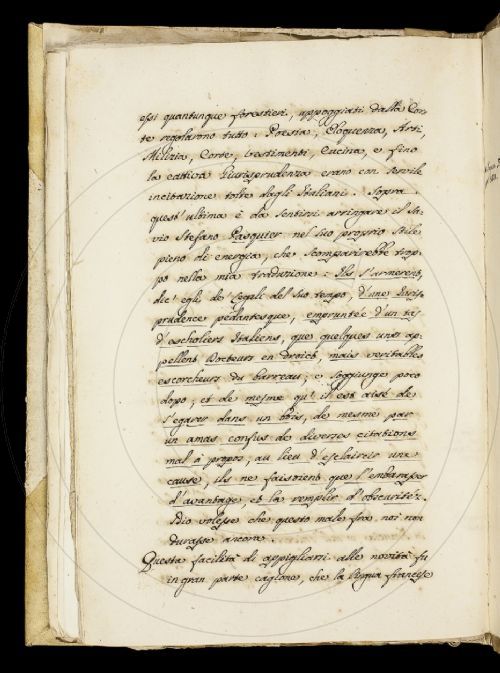 essi quantunque forestieri, appoggiati dalla Cor-
te regolarono tutto: Poesia, Eloquenza, Arti,
Milizia, Corte, vestimenti, Cucina, e fino
la cattiva Giurisprudenza erano con servile
incitazione tolte dagli Italiani. Sopra
quest'ultima è da sentirsi arringare il Sa-
vio Stefano Pasquier nel suo proprio Stile
pieno di energia, che scomparirebbe trop-
po nella mia traduzione: Ils s'armerent,
dic'egli de' Legali del suo tempo, d'une Juris-
prudence pedantesque, empruntée d'un tas
d'escholiers Italiens, que quelques uns ap-
pellent Docteurs en Droict, mais veritables
escorcheurs du barreau; e soggiunge poco
dopo, et de mesme qu'il est aisé de
s'egarer dans un bois, de mesme par
un amas confus de diverses citations
mal à propos, au lieu d'esclaircir une
cause, ils ne faisoient que l'embarasser
d'avantage, et la remplir d'obscuritéz.
Dio volesse che questo male fra noi non
durasse ancora.
Questa facilità di appigliarsi alle novità fu
in gran parte cagione, che la lingua francese